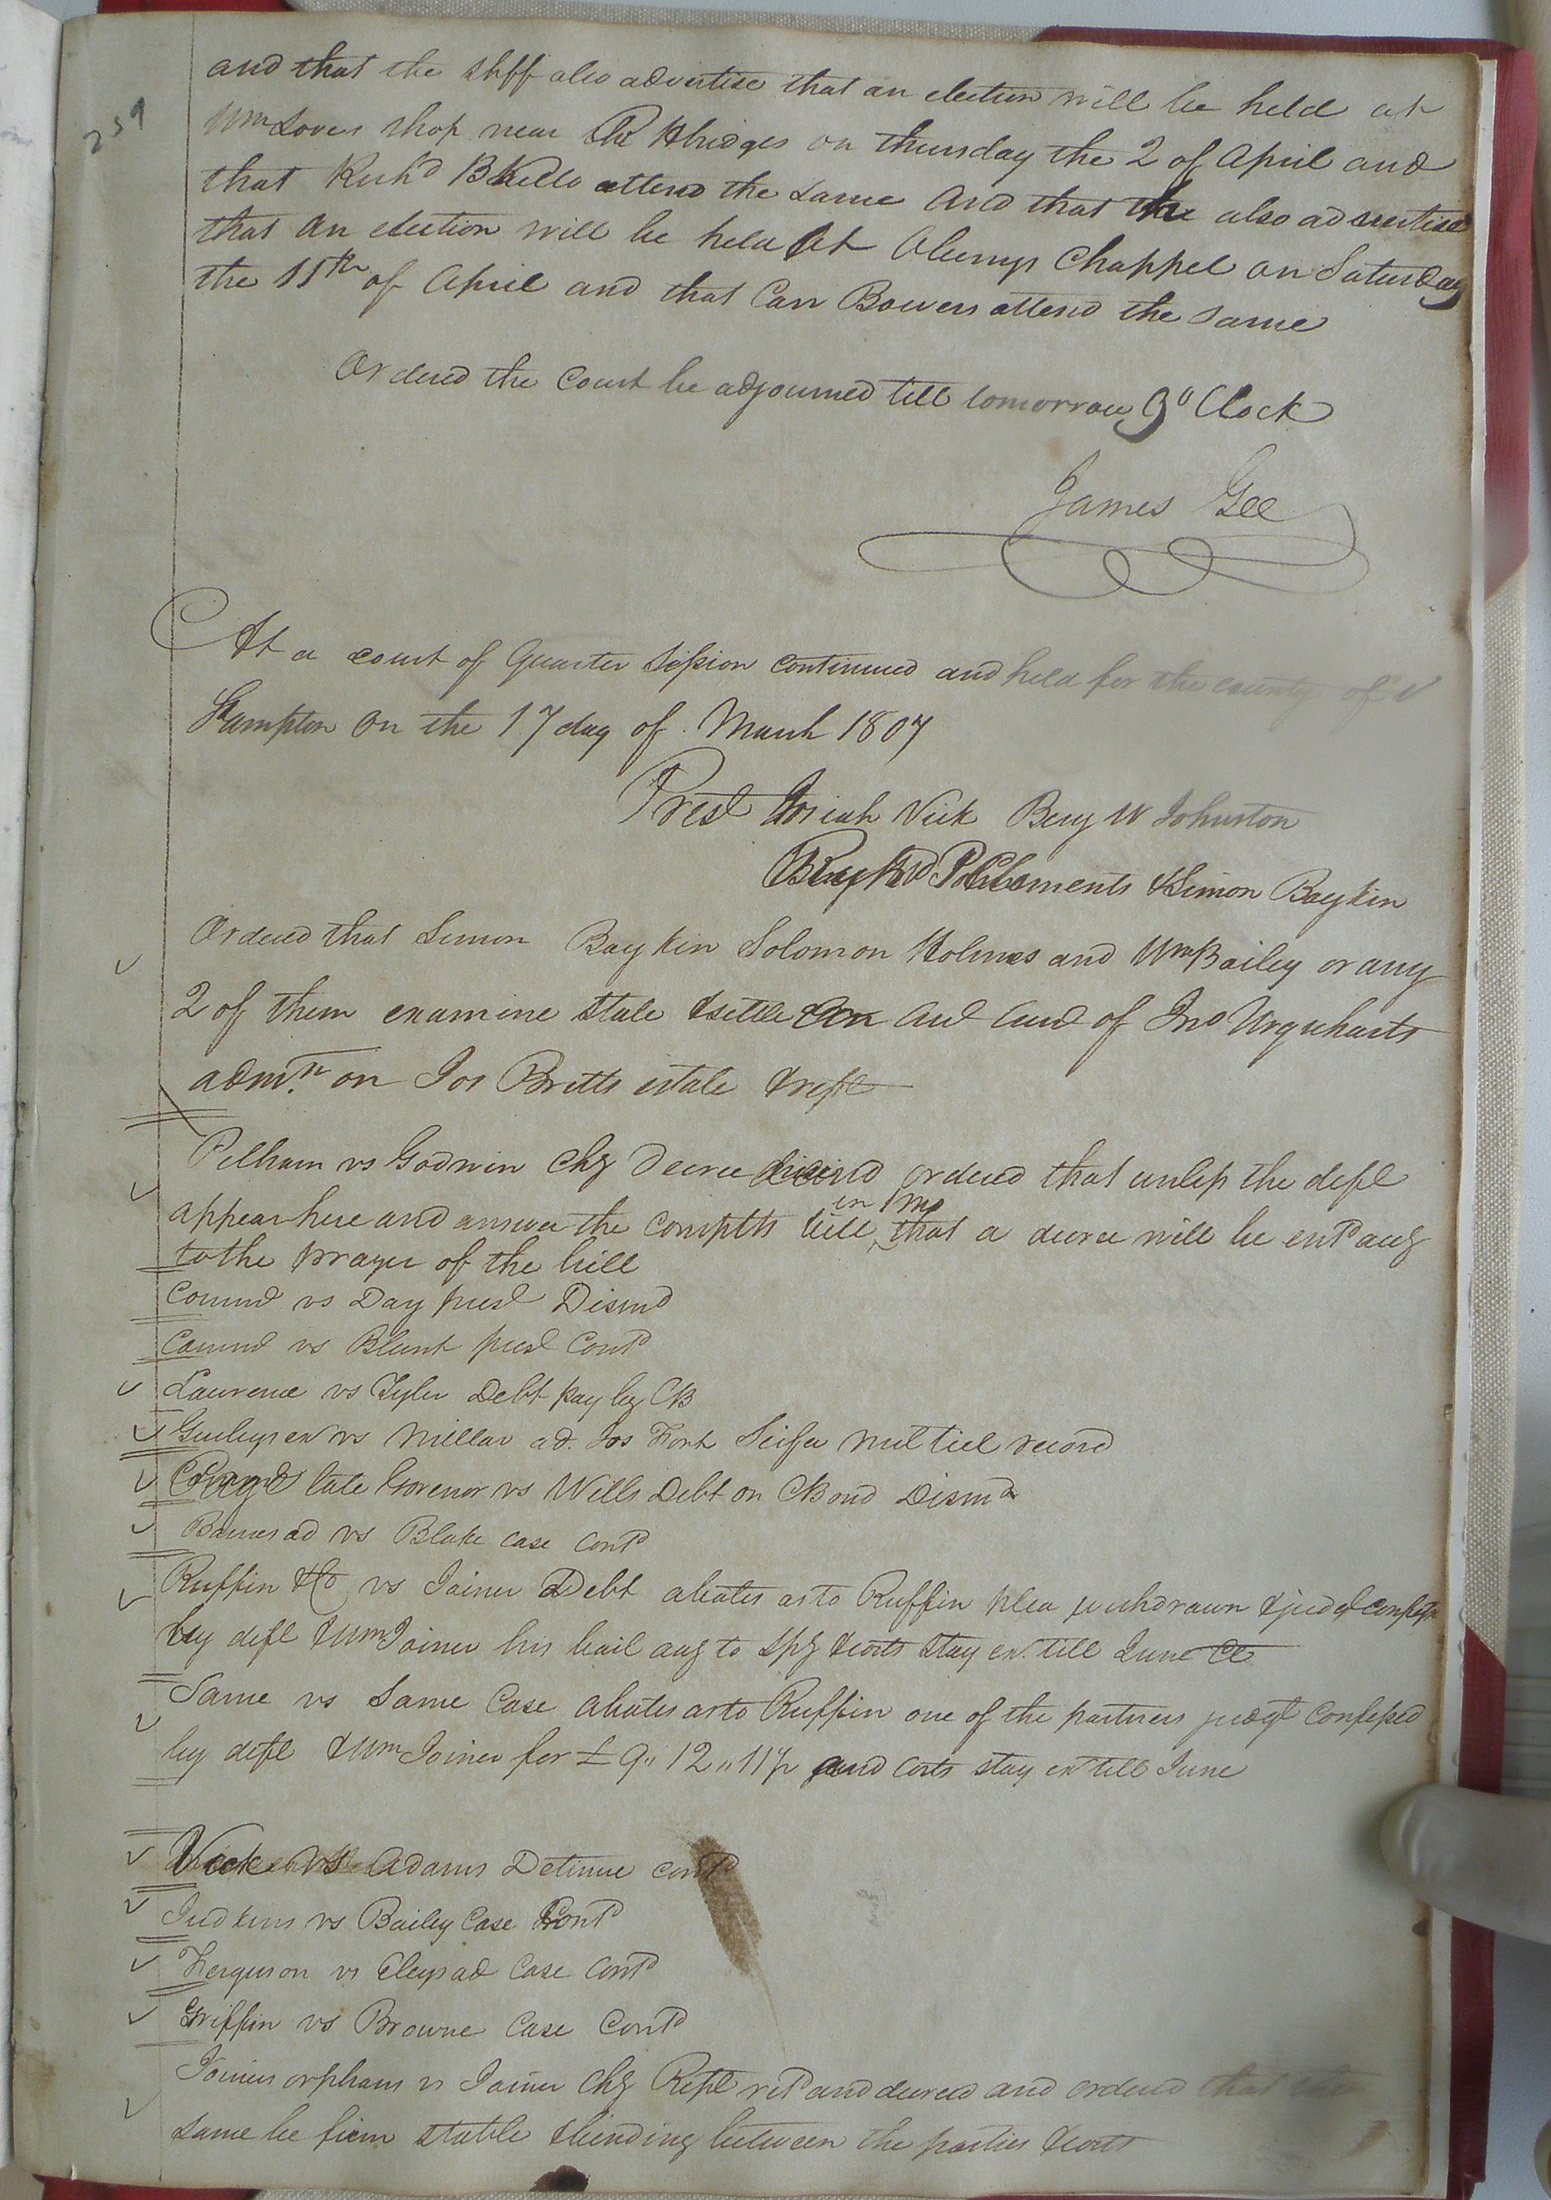 259
and that the shff also advertise that an election will be held at
Wm Loves shop near the Hbridges on thursday the 2 of April and
that Rich'd B Kello attend the same and that the also advertise
that an election will be held At Clemys Chappel on Saturday
the 11th of April and that Carr Bowers attend the same
Ordered the Court be adjourned till tomorrow 9 o Clock
James Gee
At a court of Quarter Session continued and held for the county of
Hampton on the 17 day of March 1807
Prest Josiah Vick Benj W Johnston
Clements & Simon Boykin
Ordered that Simon Boykin Solomon Holmes and Wm Bailey or any
2 of them examine state & settle an aud of Jno Urquharts
adm.n on Jos Britts estate & rept
Pelham vs Godwin Chy Decree ordered that unless the deft
appear here and answer the complts bill in 1 mo that a decree will be entd acg
to the prayer of the bill
Commd vs Day prest Dismd
Commd vs Blunt prest Contd
Lawrence vs Tyler Debt pay by CB
ex vs Millar ad. Jos Fort Scifa nul tiel record
late Govenor vs Wills Debt on CBond Dismd
Barnes ad vs Blake case contd
Ruffin & Co vs Joiner Debt abates as to Ruffin plea withdrawn & judgt confess
by deft & Wm Joiner his bail acg to spy & costs stay ex. till June Ct
Same vs Same Case abates as to Ruffin one of the partners judgt confessed
by deft & Wm Joiner for £ 9,, 12,, 11 1/2 and costs stay ex till June
Vick vs Adams Detinue contd
Judkins vs Bailey Case Contd
Ferguson vs Clays ad Case Contd
Griffin vs Browne Case Contd
Joiners orphans vs Joiner Chy Rept retd and decreed and ordered that the
same be firm stable & binding between the parties & costs